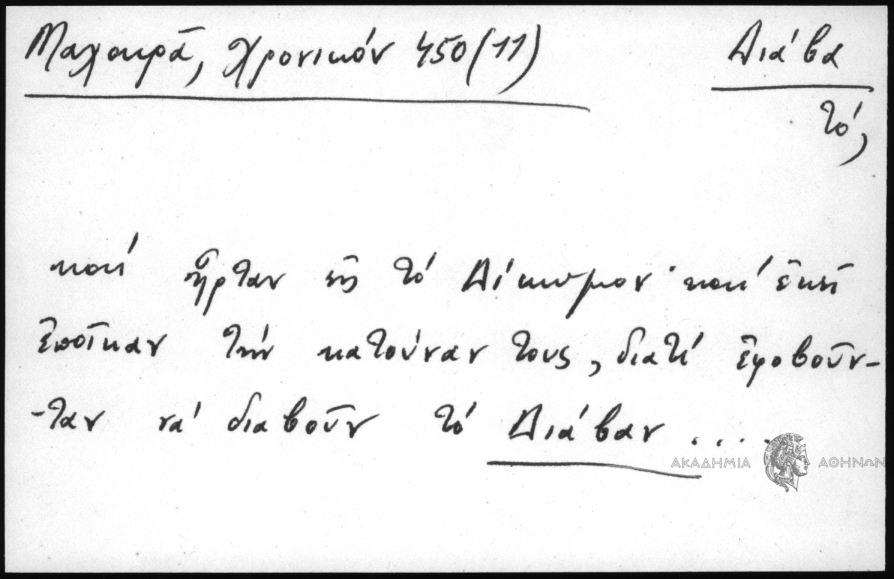 Μαχαιρᾶ, Χρονικόν 450(11)
Διάβα
τό,
καί ἦρταν εἰς τό Δίκωμον· καί ἐκεῖ
ἐποῖκαν τήν κατοῦναν τους, διατί ἐφοβοῦν-
-ταν νά διαβοῦν τό Διάβαν ....
ΑΚΑΔΗΜΙΑ ΑΘΗΝΩΝ